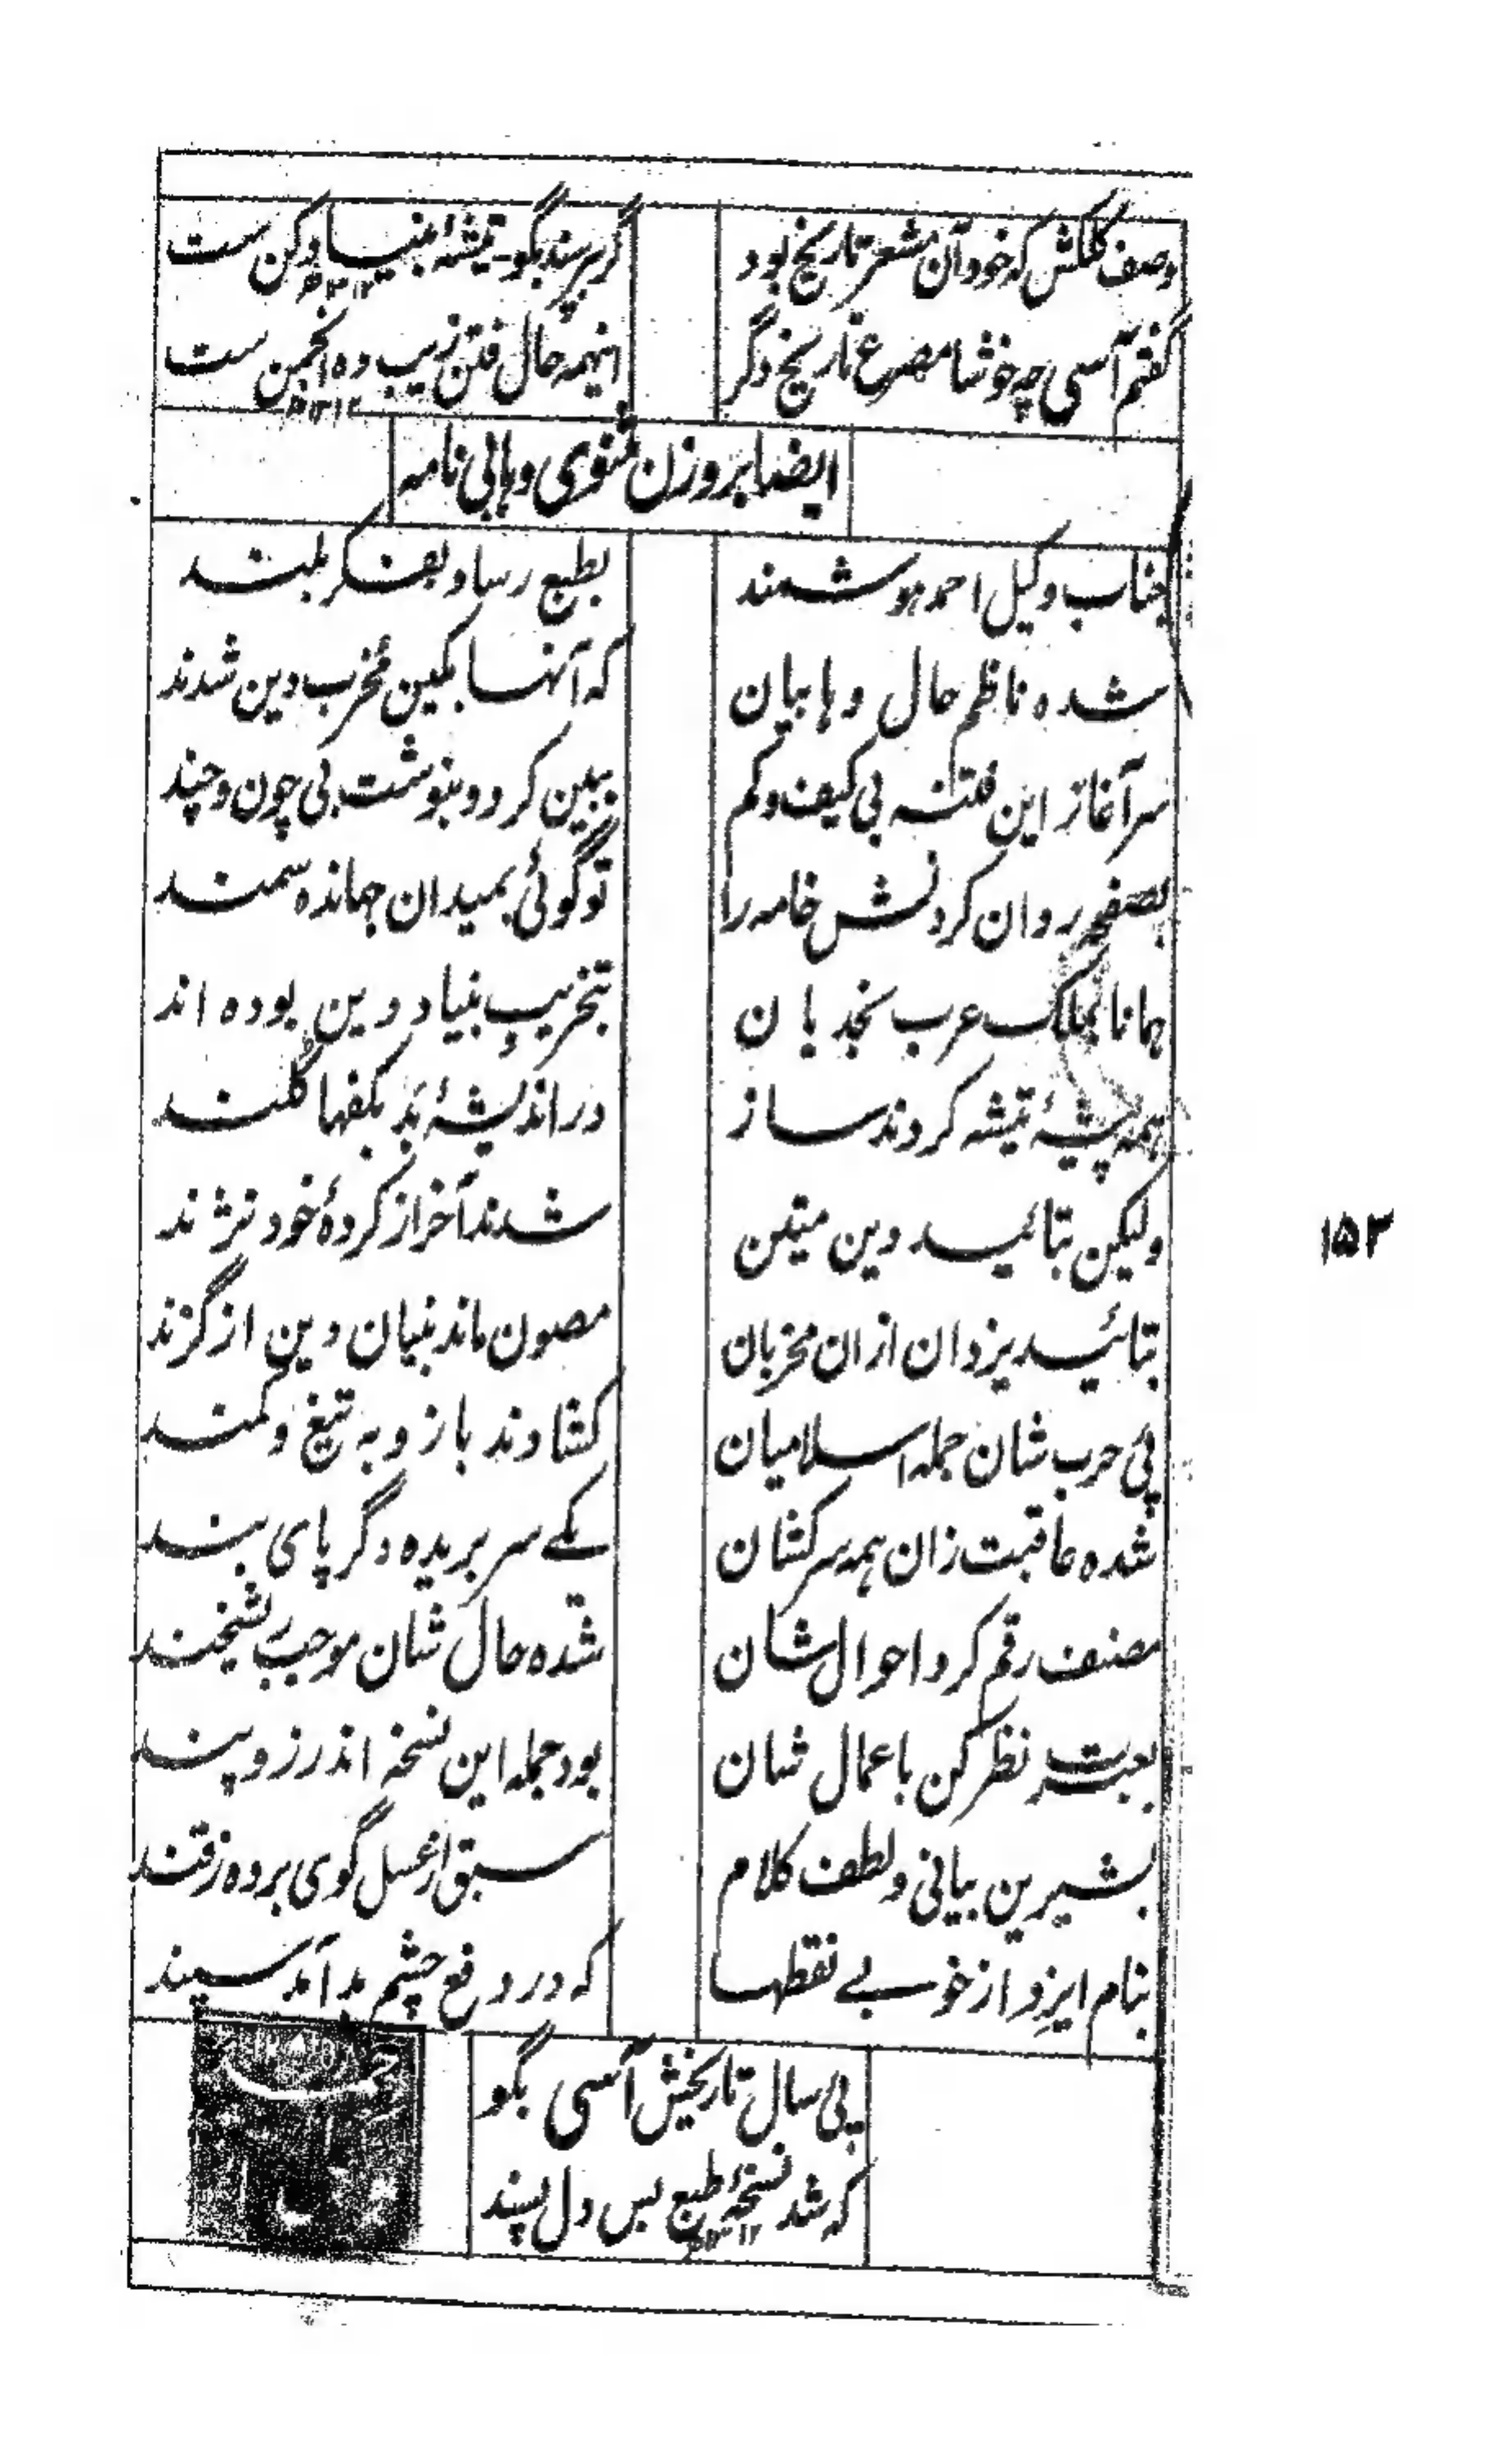 وصف کلکش که خود آن مشعر تاریخ بود گر بپرسند بگو - تیشۂ بنیاد کن ست
۱۳۱۲ھ
گفتم آسی چه خوشا مصرع تاریخ دگر اینهمه حال فتن زیب ده انجمن ست
۱۳۱۲ھ
ایضا بر وزن مثنوی وهابی نامه
جناب وکیل احمد هوشمند بطبع رسا و بفکر بلند
شده ناظم حال وهابیان که آنها بکین مخرب دین شدند
سر آغاز این فتنه بی کیف و کم ببین کرد و بنوشت بی چون و چند
بصفحه روان کردنش خامه را تو گوئی بمیدان جهانده سمند
همانا بملک عرب نجدیان بتخریب بنیاد دین بوده اند
همه پیشۂ تیشه کردند ساز در اندیشۂ بد بکفها کلند
ولیکن بتائید دین متین شدند آخر از کردۂ خود نژند
بتائید یزدان ازان مخربان مصون ماند بنیان دین از گزند
پی حرب شان جمله اسلامیان کشادند بازو به تیغ و کمند
شده عاقبت زان همه سرکشان یکے سر بریده دگر پای بند
مصنف رقم کرد احوال شان شده حال شان موجب ریشخند
بعبرت نظر کن باعمال شان بود جمله این نسخه اندرز و پند
بشیرین بیانی و لطف کلام سبق از عسل گوی برده ز قند
بنام ایزد از خوبے نقطها که در دفع چشم بد آمد سپند
پی سال تاریخش آسی بگو
که شد نسخۂ طبع بس دل پسند
۱۵۲